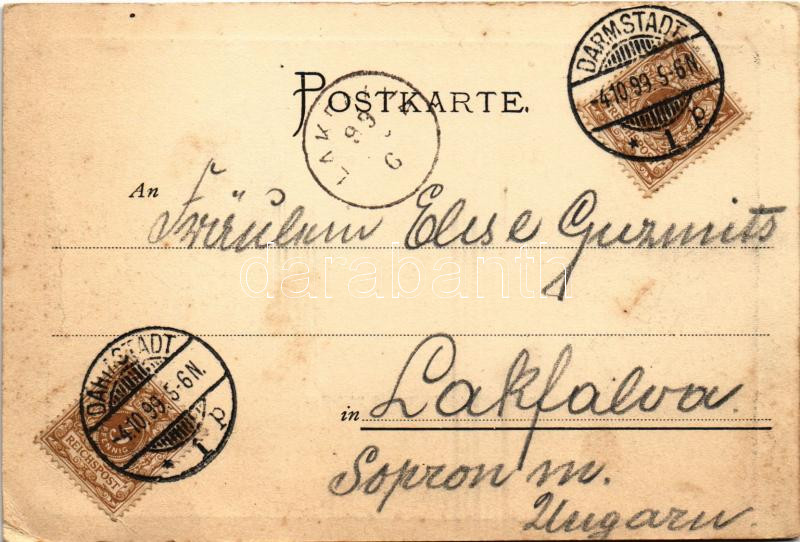 DARMSTADT
-4.10.99. 5-6N.
* 1 p
POSTKARTE.
LAK
99
An Fräulein Elise Guzmits
darabanth
in Lakfalva
Sopron m.
Ungarn.
DARMSTADT
-4.10.99. 5-6N.
* 1 p
REICHSPOST